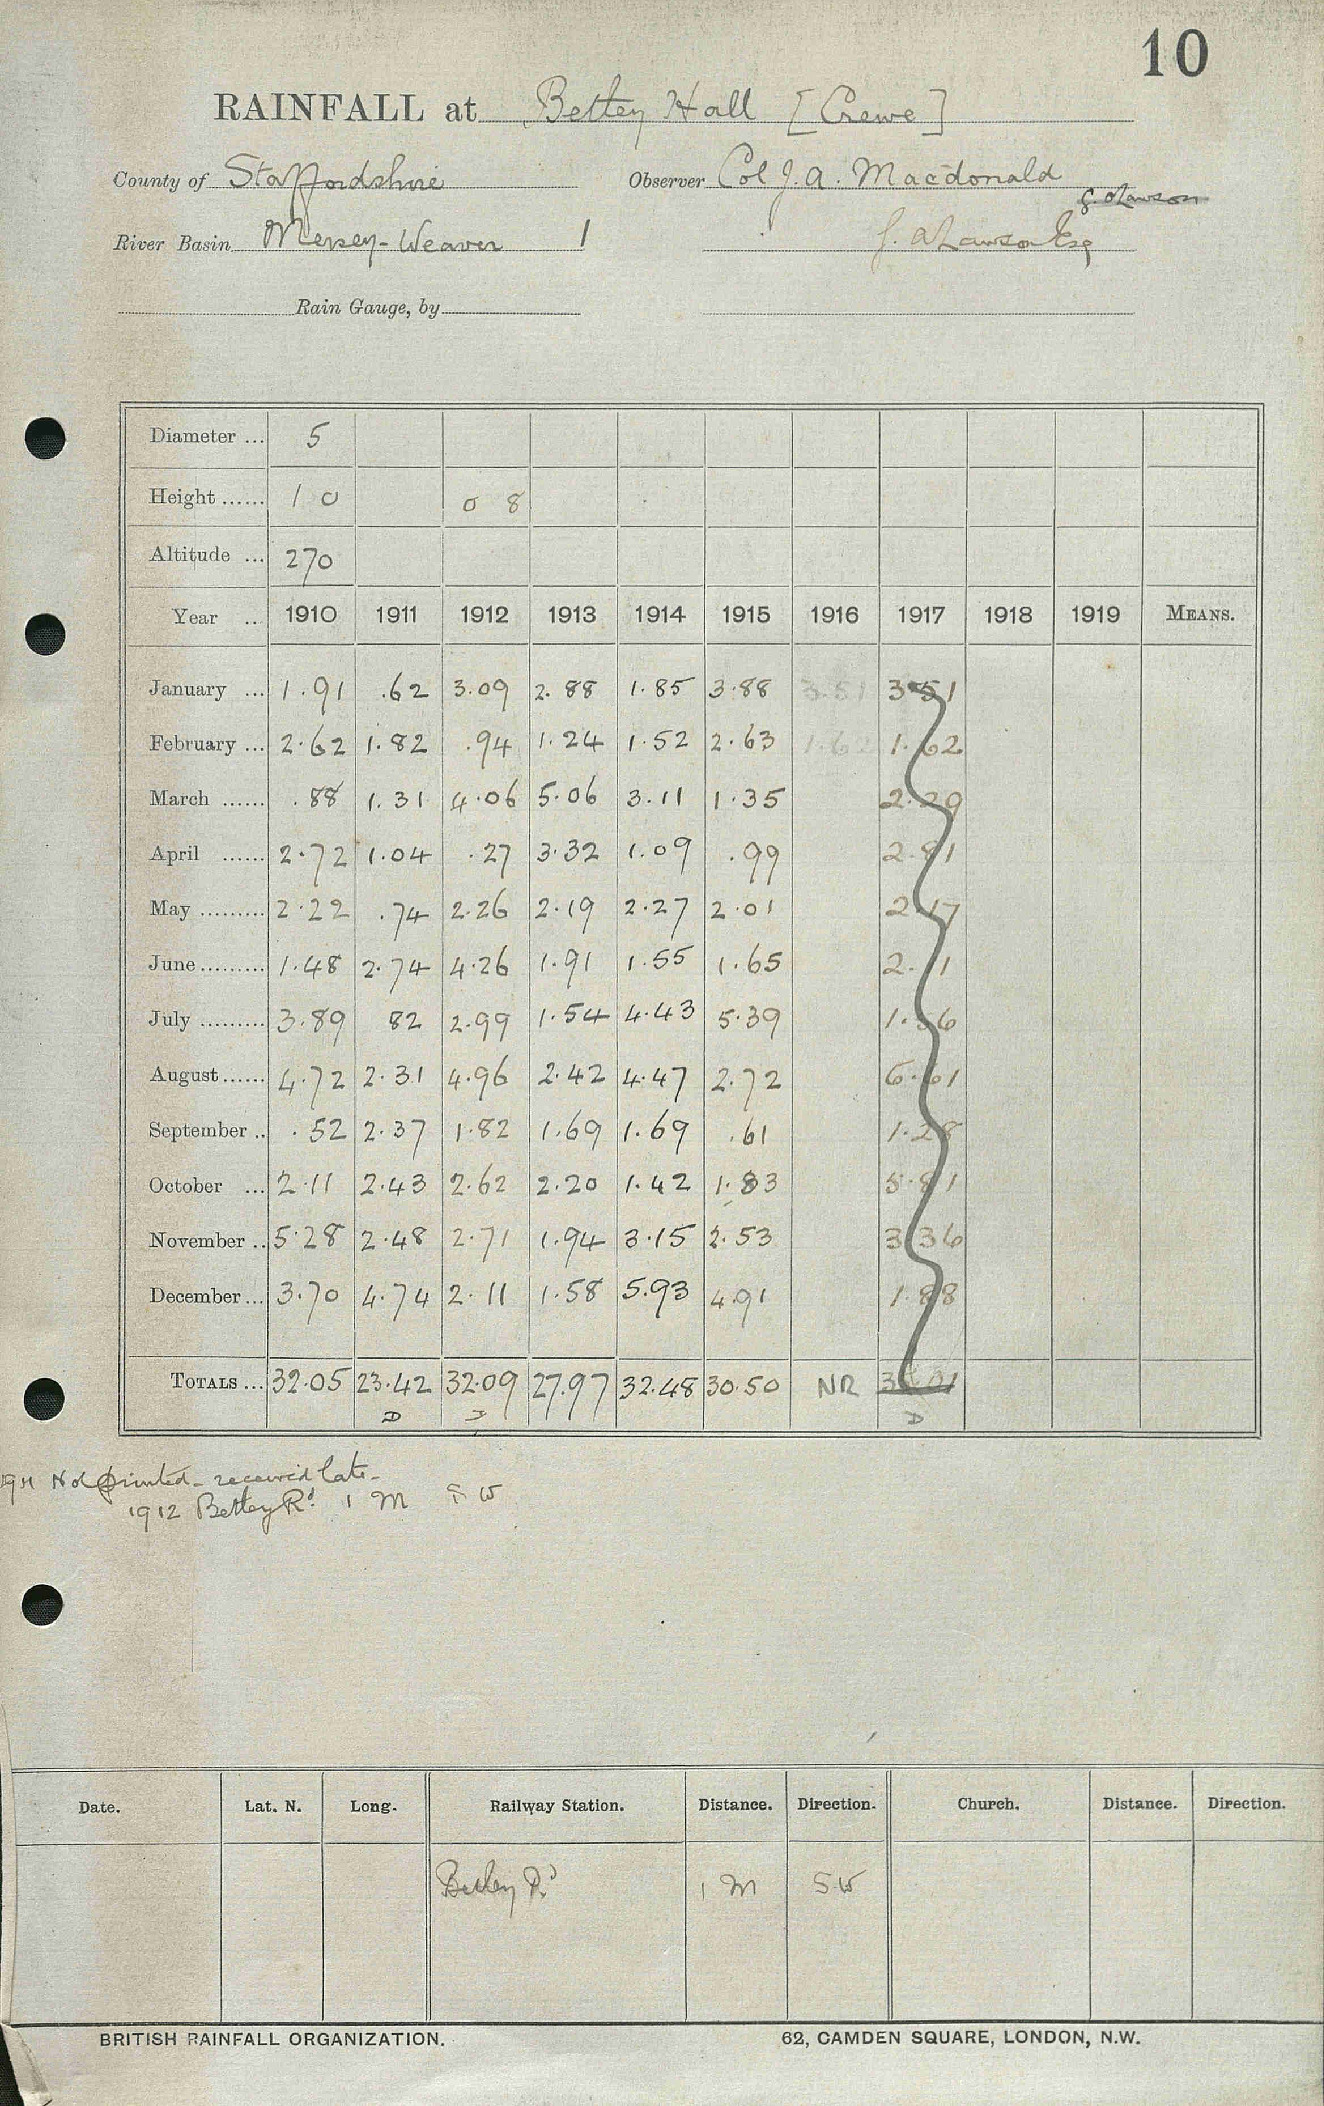 10
RAINFALL at Betley Hall [Crewe]
County of Staffordshire Observer Col J. A. Macdonald
G. A Lawson
River Basin Mersey-Weaver 1 J. A Lawson Esq
Rain Gauge, by
Diameter ... 5
Height ...... 1 0 0 8
Altitude ... 270
Year .. 1910 1911 1912 1913 1914 1915 1916 1917 1918 1919 MEANS.
January ... 1.91 .62 3.09 2.88 1.85 3.88 3.51 3.51
February ... 2.62 1.82 .94 1.24 1.52 2.63 1.62 1.62
March ...... .88 1.31 4.06 5.06 3.11 1.35 2.29
April ...... 2.72 1.04 .27 3.32 1.09 .99 2.81
May ......... 2.22 .74 2.26 2.19 2.27 2.01 2.17
June ......... 1.48 2.74 4.26 1.91 1.55 1.65
July ......... 3.89 82 2.99 1.54 4.43 5.39
August ...... 4.72 2.31 4.96 2.42 4.47 2.72
September .. .52 2.37 1.82 1.69 1.69 .61 1.28
October ... 2.11 2.43 2.62 2.20 1.42 1.83 5.81
November .. 5.28 2.48 2.71 1.94 3.15 2.53 3.36
December ... 3.70 4.74 2.11 1.58 5.93 4.91 1.88
TOTALS ... 32.05 23.42 32.09 27.97 32.48 30.50 NR
D D D
1911 Not printed - received late -
1912 Betley Rd. 1 M S W
Date. Lat. N. Long. Railway Station. Distance. Direction. Church. Distance. Direction.
Betley Rd 1 M SW
BRITISH RAINFALL ORGANIZATION. 62, CAMDEN SQUARE, LONDON, N.W.